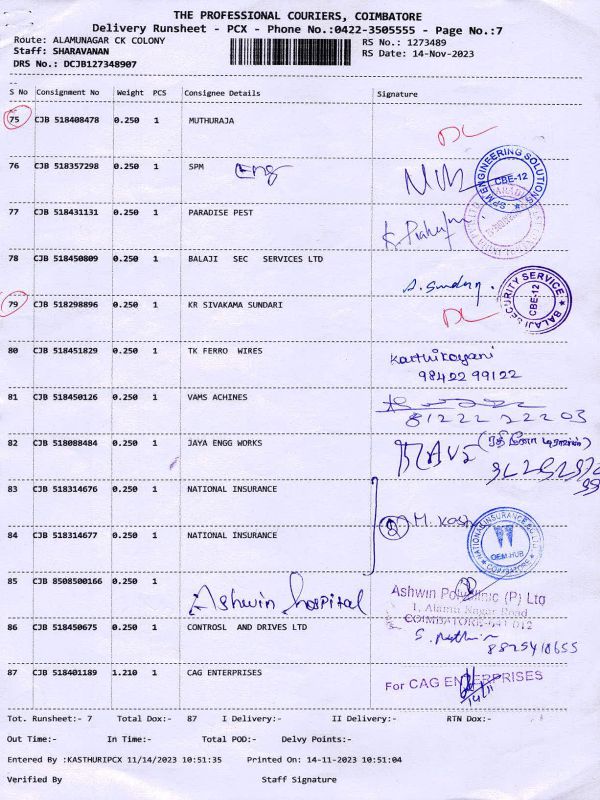 THE PROFESSIONAL COURIERS, COIMBATORE
Delivery Runsheet - PCX - Phone No.:0422-3505555 - Page No.:7
Route: ALAMUNAGAR CK COLONY RS No.: 1273489
Staff: SHARAVANAN RS Date: 14-Nov-2023
DRS No.: DCJB127348907
S No Consignment No Weight PCS Consignee Details Signature
75 CJB 518408478 0.250 1 MUTHURAJA DL
76 CJB 518357298 0.250 1 SPM Eng SPM ENGINEERING SOLUTIONS CBE-12
77 CJB 518431131 0.250 1 PARADISE PEST
78 CJB 518450809 0.250 1 BALAJI SEC SERVICES LTD A. Sundar BALAJI SECURITY SERVICE CBE-12
79 CJB 518298896 0.250 1 KR SIVAKAMA SUNDARI DL
80 CJB 518451829 0.250 1 TK FERRO WIRES Karthikayani
98422 99122
81 CJB 518450126 0.250 1 VAMS ACHINES
81222 22203
82 CJB 518088484 0.250 1 JAYA ENGG WORKS
83 CJB 518314676 0.250 1 NATIONAL INSURANCE
84 CJB 518314677 0.250 1 NATIONAL INSURANCE 2 M. NATIONAL INSURANCE GEM-HUB COIMBATORE
85 CJB 8508500166 0.250 1 Ashwin hospital Ashwin Polyclinic (P) Ltd
1, Alamu Nagar Road
COIMBATORE-641 012
86 CJB 518450675 0.250 1 CONTROSL AND DRIVES LTD
8825410655
87 CJB 518401189 1.210 1 CAG ENTERPRISES For CAG ENTERPRISES
14/11
Tot. Runsheet:- 7 Total Dox:- 87 I Delivery:- II Delivery:- RTN Dox:-
Out Time:- In Time:- Total POD:- Delvy Points:-
Entered By :KASTHURIPCX 11/14/2023 10:51:35 Printed On: 14-11-2023 10:51:04
Verified By Staff Signature